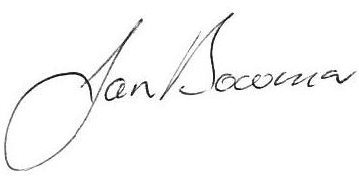 Jan Bocoma